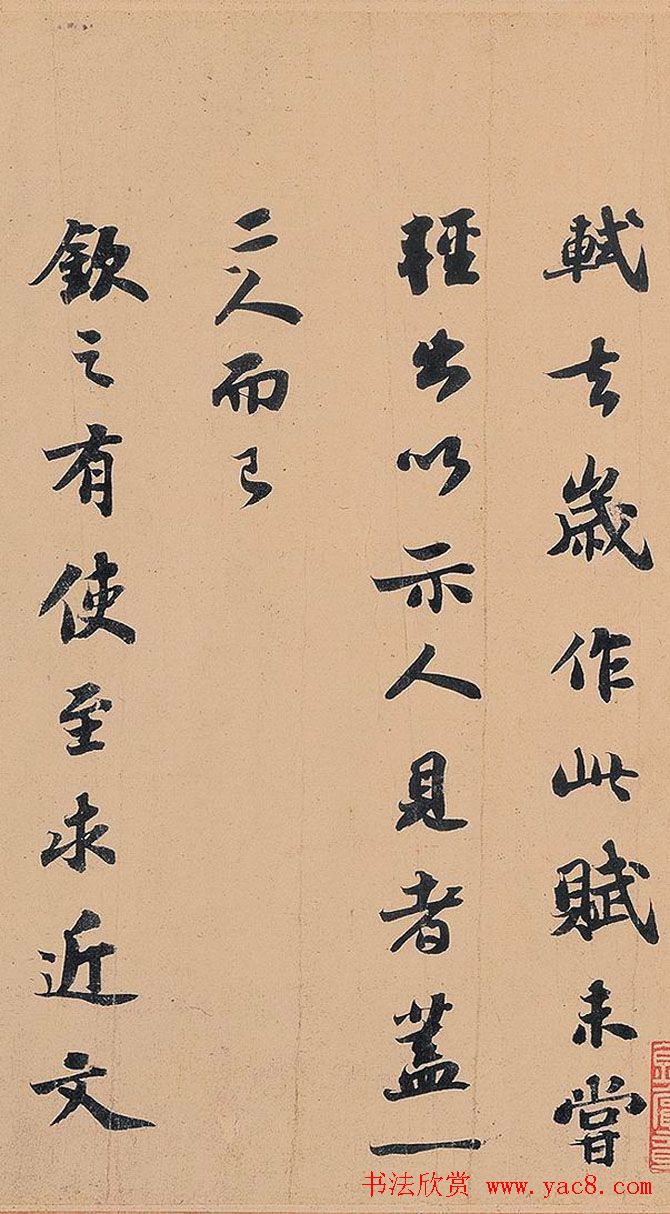 軾去歲作此賦未嘗
輕出以示人見者蓋一
二人而已
欽之有使至求近文
书法欣赏 www.yac8.com